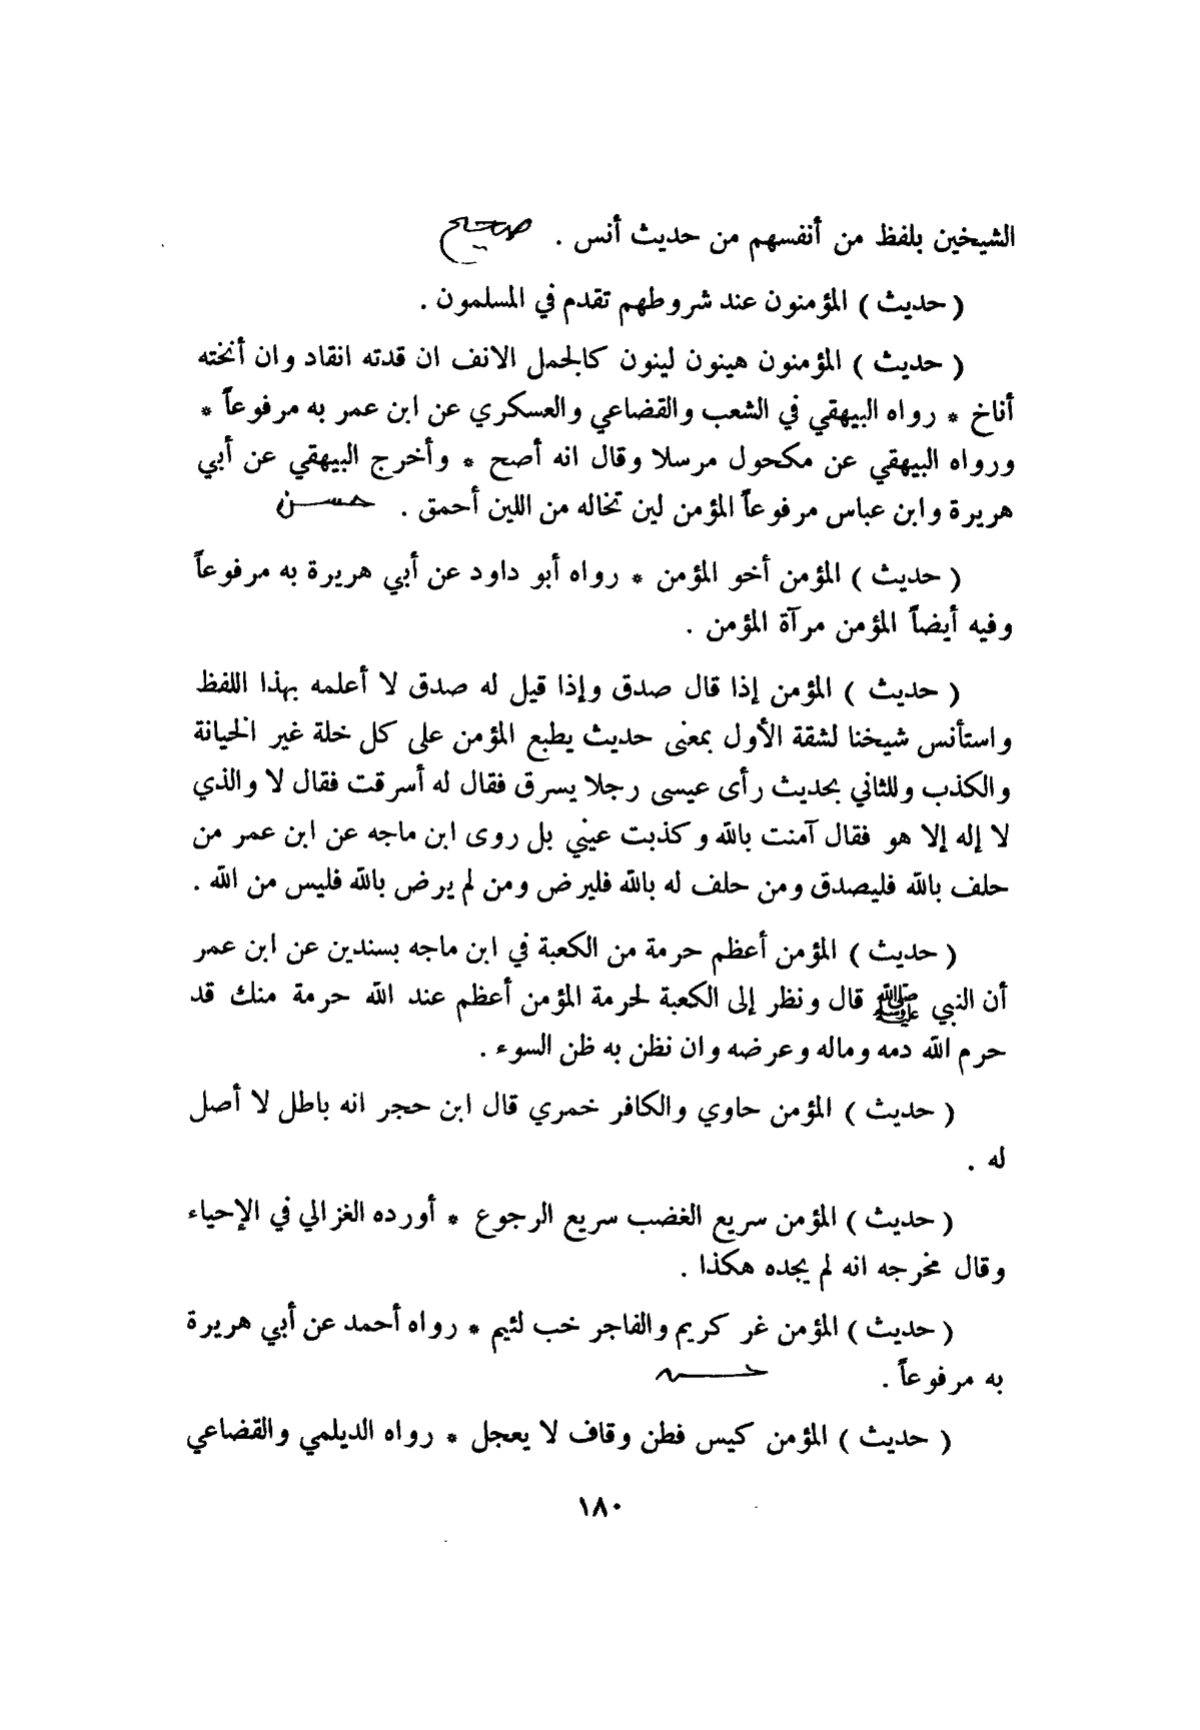 الشيخين بلفظ من أنفسهم من حديث أنس . صحيح
( حديث ) المؤمنون عند شروطهم تقدم في المسلمون .
( حديث ) المؤمنون هينون لينون كالجمل الانف ان قدته انقاد وان أنخته
أناخ * رواه البيهقي في الشعب والقضاعي والعسكري عن ابن عمر به مرفوعاً *
ورواه البيهقي عن مكحول مرسلا وقال انه أصح * وأخرج البيهقي عن أبي
هريرة وابن عباس مرفوعاً المؤمن لين تخاله من اللين أحمق . حسن
( حديث ) المؤمن أخو المؤمن * رواه أبو داود عن أبي هريرة به مرفوعاً
وفيه أيضاً المؤمن مرآة المؤمن .
( حديث ) المؤمن إذا قال صدق وإذا قيل له صدق لا أعلمه بهذا اللفظ
واستأنس شيخنا لشقة الأول بمعنى حديث يطبع المؤمن على كل خلة غير الخيانة
والكذب وللثاني بحديث رأى عيسى رجلا يسرق فقال له أسرقت فقال لا والذي
لا إله إلا هو فقال آمنت بالله وكذبت عيني بل روى ابن ماجه عن ابن عمر من
حلف بالله فليصدق ومن حلف له بالله فليرض ومن لم يرض بالله فليس من الله .
( حديث ) المؤمن أعظم حرمة من الكعبة في ابن ماجه بسندين عن ابن عمر
أن النبي ﷺ قال ونظر إلى الكعبة لحرمة المؤمن أعظم عند الله حرمة منك قد
حرم الله دمه وماله وعرضه وان نظن به ظن السوء .
( حديث ) المؤمن حاوي والكافر خمري قال ابن حجر انه باطل لا أصل
له .
( حديث ) المؤمن سريع الغضب سريع الرجوع * أورده الغزالي في الإحياء
وقال مخرجه انه لم يجده هكذا .
( حديث ) المؤمن غر كريم والفاجر خب لئيم * رواه أحمد عن أبي هريرة
به مرفوعاً . حسن
( حديث ) المؤمن كيس فطن وقاف لا يعجل * رواه الديلمي والقضاعي
١٨٠